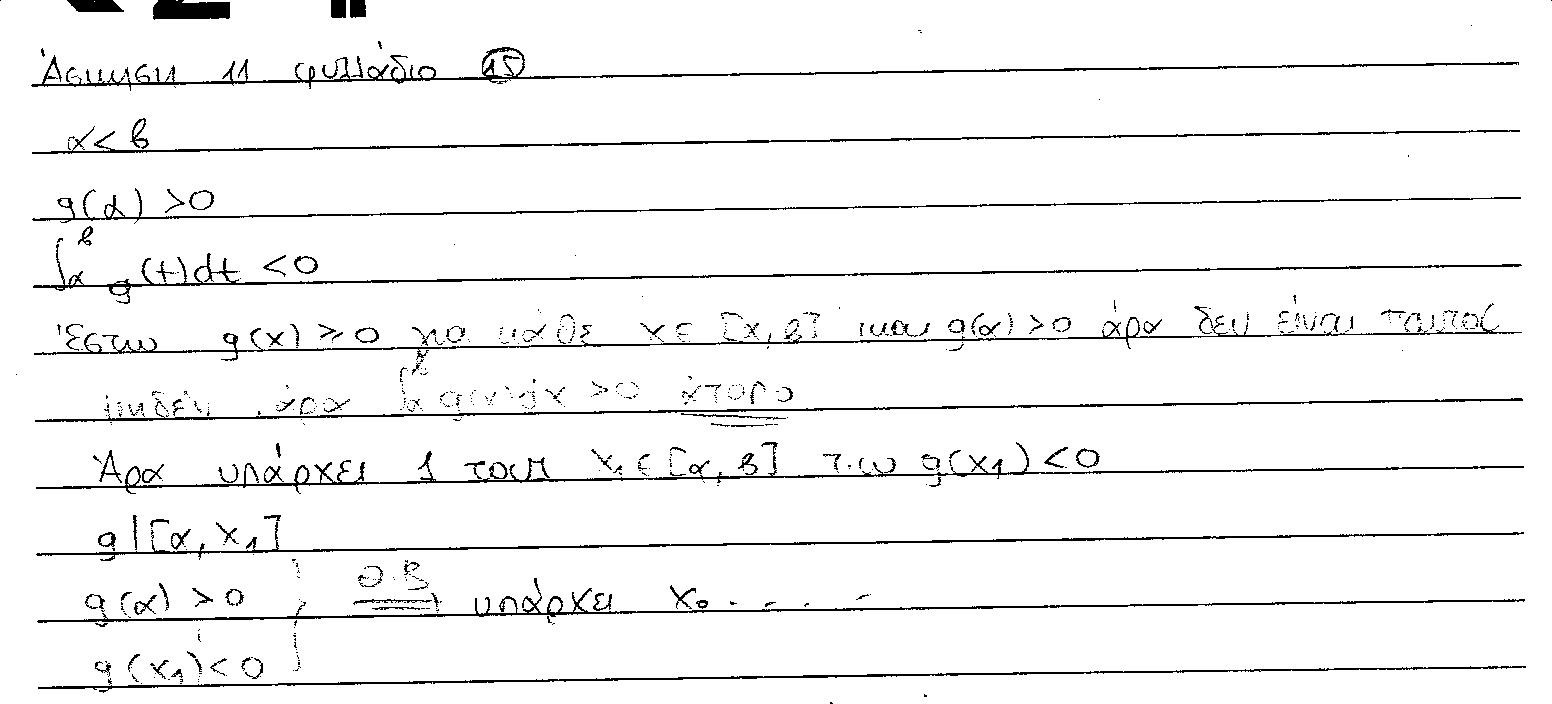 Άσκηση 11 φυλλάδιο 15
α < β
g(α) > 0
∫αβ g(t)dt < 0
Έστω g(x) ≥ 0 για κάθε x ∈ [α, β] και g(α) > 0 άρα δεν είναι παντού
μηδέν, άρα ∫αβ g(x)dx > 0 άτοπο
Άρα υπάρχει 1 τουλ x₁ ∈ [α, β] τ.ω g(x₁) < 0
g | [α, x₁]
g(α) > 0 } Θ.Β ⟹ υπάρχει x₀ . - . . -
g(x₁) < 0